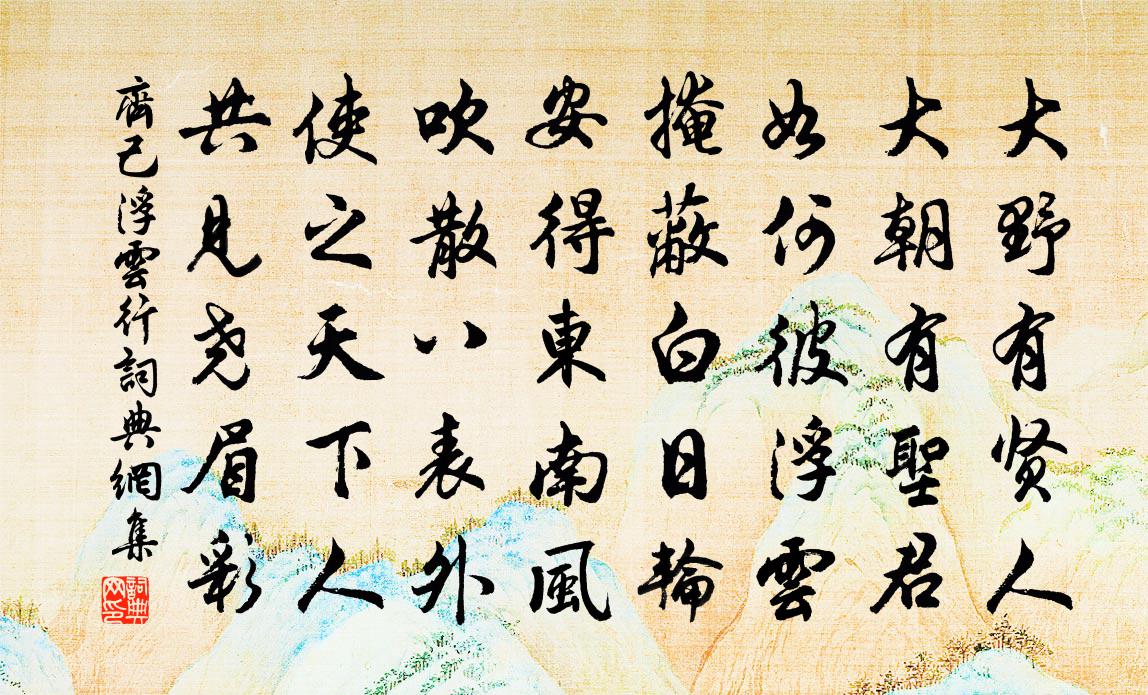 大野有贤人
大朝有聖君
如何彼浮雲
掩蔽白日輪
安得東南風
吹散八表外
使之天下人
共見尧眉彩
齊己浮雲行詞典網集
詞典网印